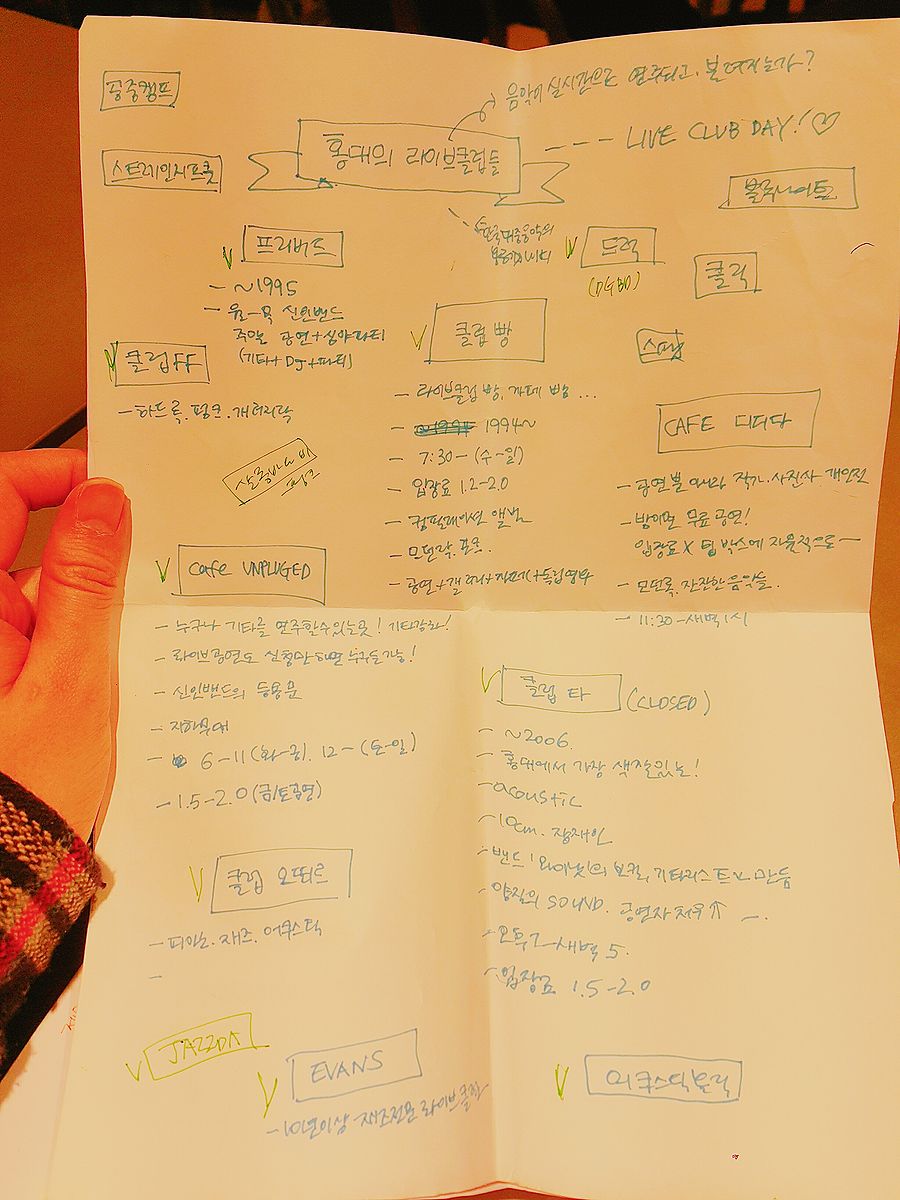 음악이 실시간으로 연주되고, 보여지는가?
공중캠프
홍대의 라이브클럽들
LIVE CLUB DAY!♡
스트레인지프룻
블루나이트
한국대중음악의
프리버드
드럭
(DGBD)
쿨럭
- ~1995
- 월-목 신인밴드
주말 공연+심야파티
(기타+DJ+파티)
클럽 빵
스팟
클럽FF
- 하드록. 펑크. 개러지락
- 라이브클럽 빵, 카페 빵 ...
- 1994~
- 7:30- (수-일)
- 입장료 1.2-2.0
- 컴필레이션 앨범
- 모던락. 포크.
- 공연+갤러리+카페+독립영화
CAFE 디디다
- 공연뿐 아니라 작가. 사진사 개인전
- 무료공연!
입장료 X 팁 박스에 자율적으로 -
- 모던록, 잔잔한 음악들.
- 11:30-새벽1시
살롱바다비
펑크
Cafe UNPLUGED
- 누구나 기타를 연주할수있는곳! 기타강좌!
- 라이브공연도 신청만 하면 누구든가능!
- 신인밴드의 등용문
- 지하무대
- 6-11(화-금). 12-(토-일)
- 1.5-2.0(금/토공연)
클럽 타 (CLOSED)
- ~2006.
- 홍대에서 가장 색깔있는!
- acoustic
- 10cm. 장재인
- 밴드 '와이낫'의 보컬, 기타리스트가 만듬
- 양질의 SOUND. 공연자 처우↑ -.
- 오후7-새벽 5.
- 입장료 1.5-2.0
클럽 오뙤르
- 피아노. 재즈. 어쿠스틱
-
JAZZDA
EVANS
- 10년이상 재즈전문 라이브클럽
어쿠스틱홀릭